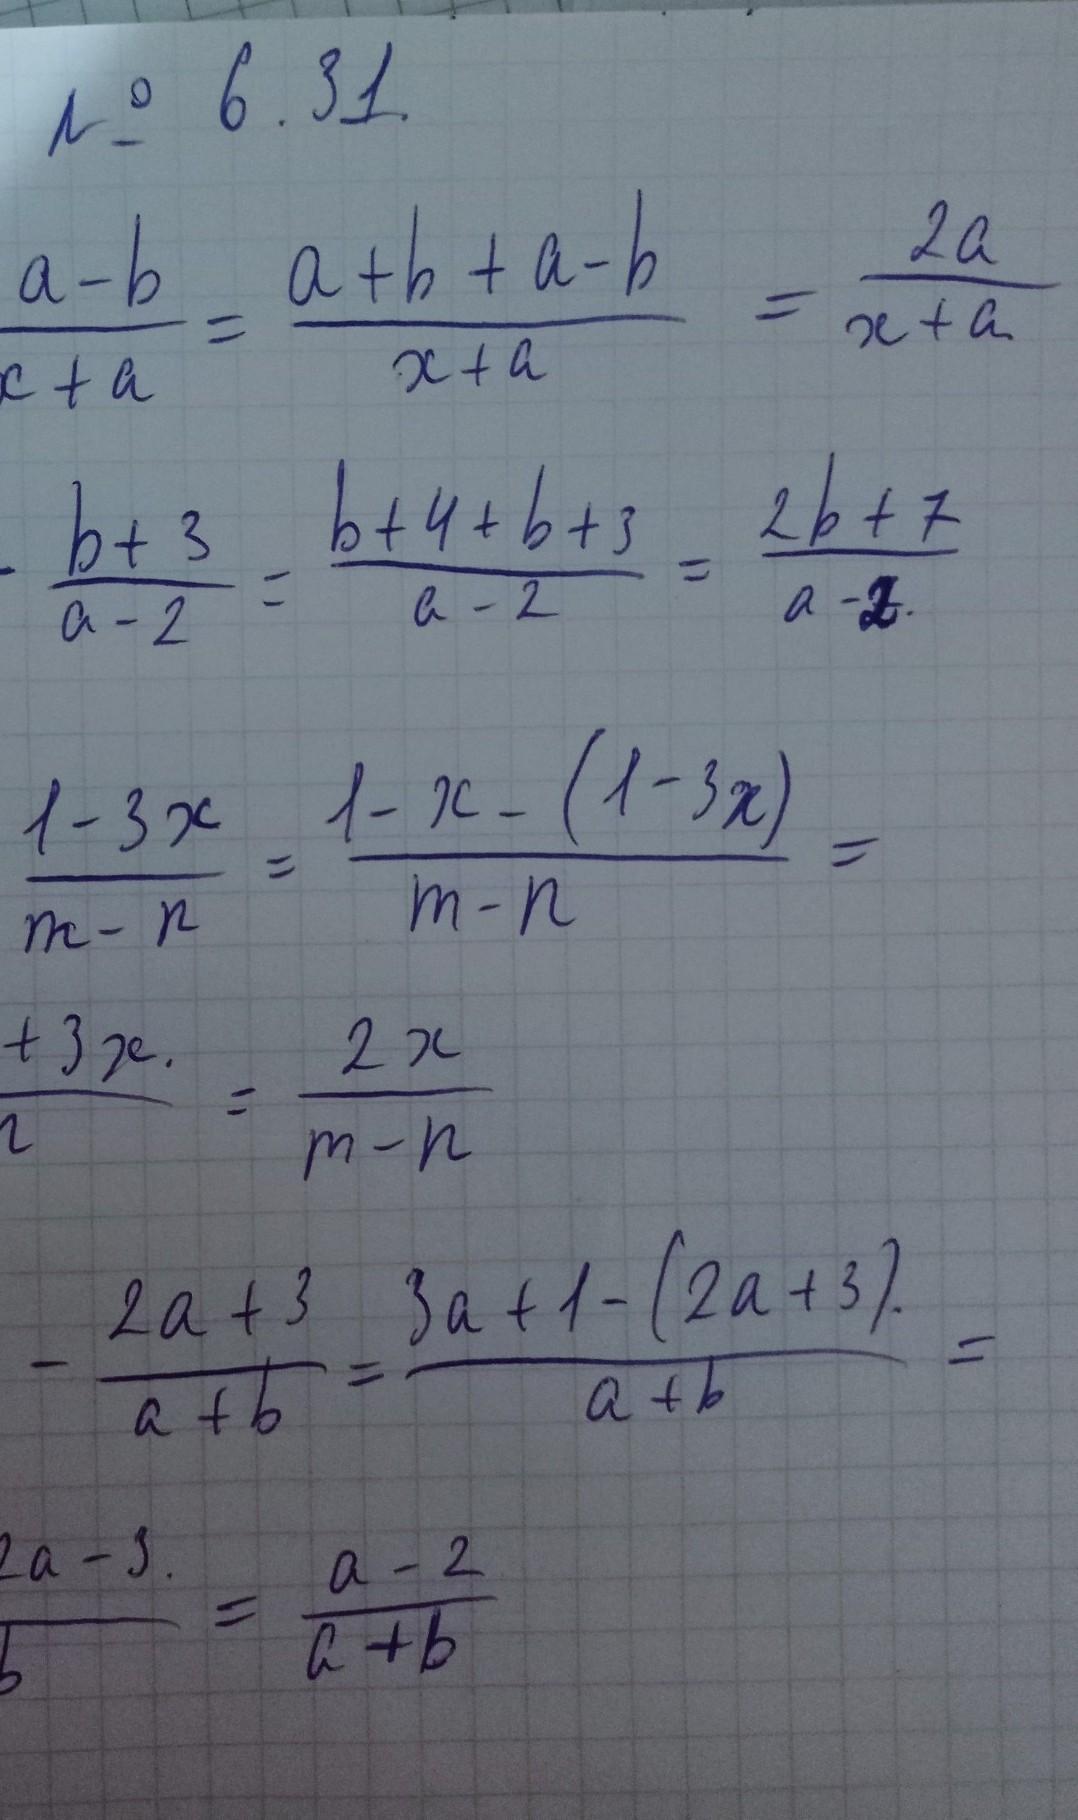 № 6.31.
a-b/x+a = a+b+a-b/x+a = 2a/x+a
- b+3/a-2 = b+4+b+3/a-2 = 2b+7/a-2.
1-3x/m-n = 1-x-(1-3x)/m-n =
+3x./n = 2x/m-n
- 2a+3/a+b = 3a+1-(2a+3)./a+b =
2a-3./b = a-2/a+b